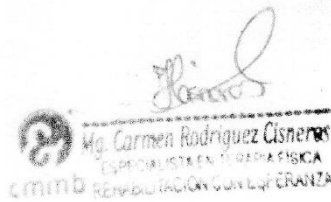 Mg. Carmen Rodriguez Cisneros
ESPECIALISTA EN TERAPIA FISICA
cmmb REHABILITACION CON ESPERANZA